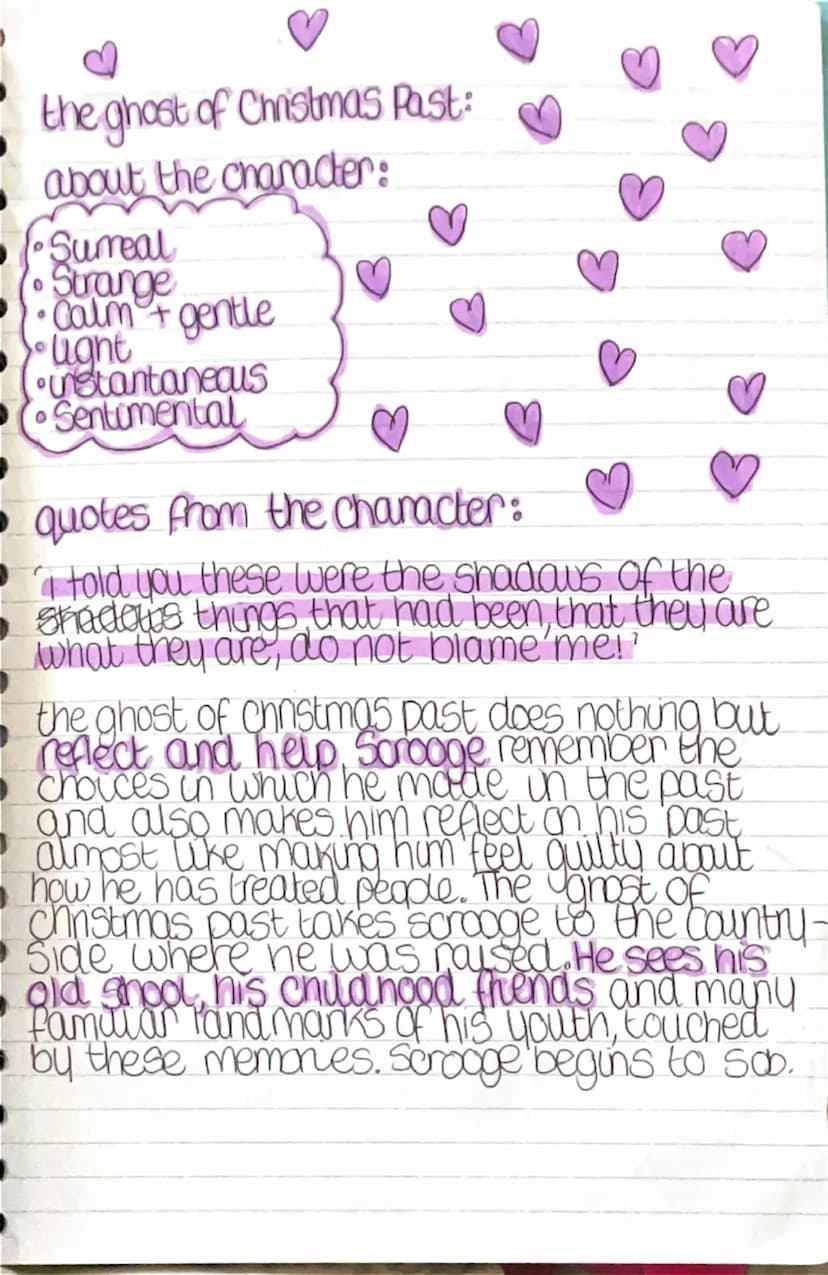 the ghost of Christmas Past:
about the character:
• Surreal
• Strange
• Calm + gentle
• light
• instantaneous
• Sentimental
quotes from the character:
'I told you these were the shadows of the
shadows things that had been, that they are
what they are, do not blame me!'
the ghost of christmas past does nothing but
reflect and help Scrooge remember the
choices in which he made in the past
and also makes him reflect on his past
almost like making him feel guilty about
how he has treated people. The ghost of
christmas past takes scrooge to the country-
side where he was raised. He sees his
old shool, his childhood friends and many
familiar landmarks of his youth, touched
by these memories. Scrooge begins to sob.